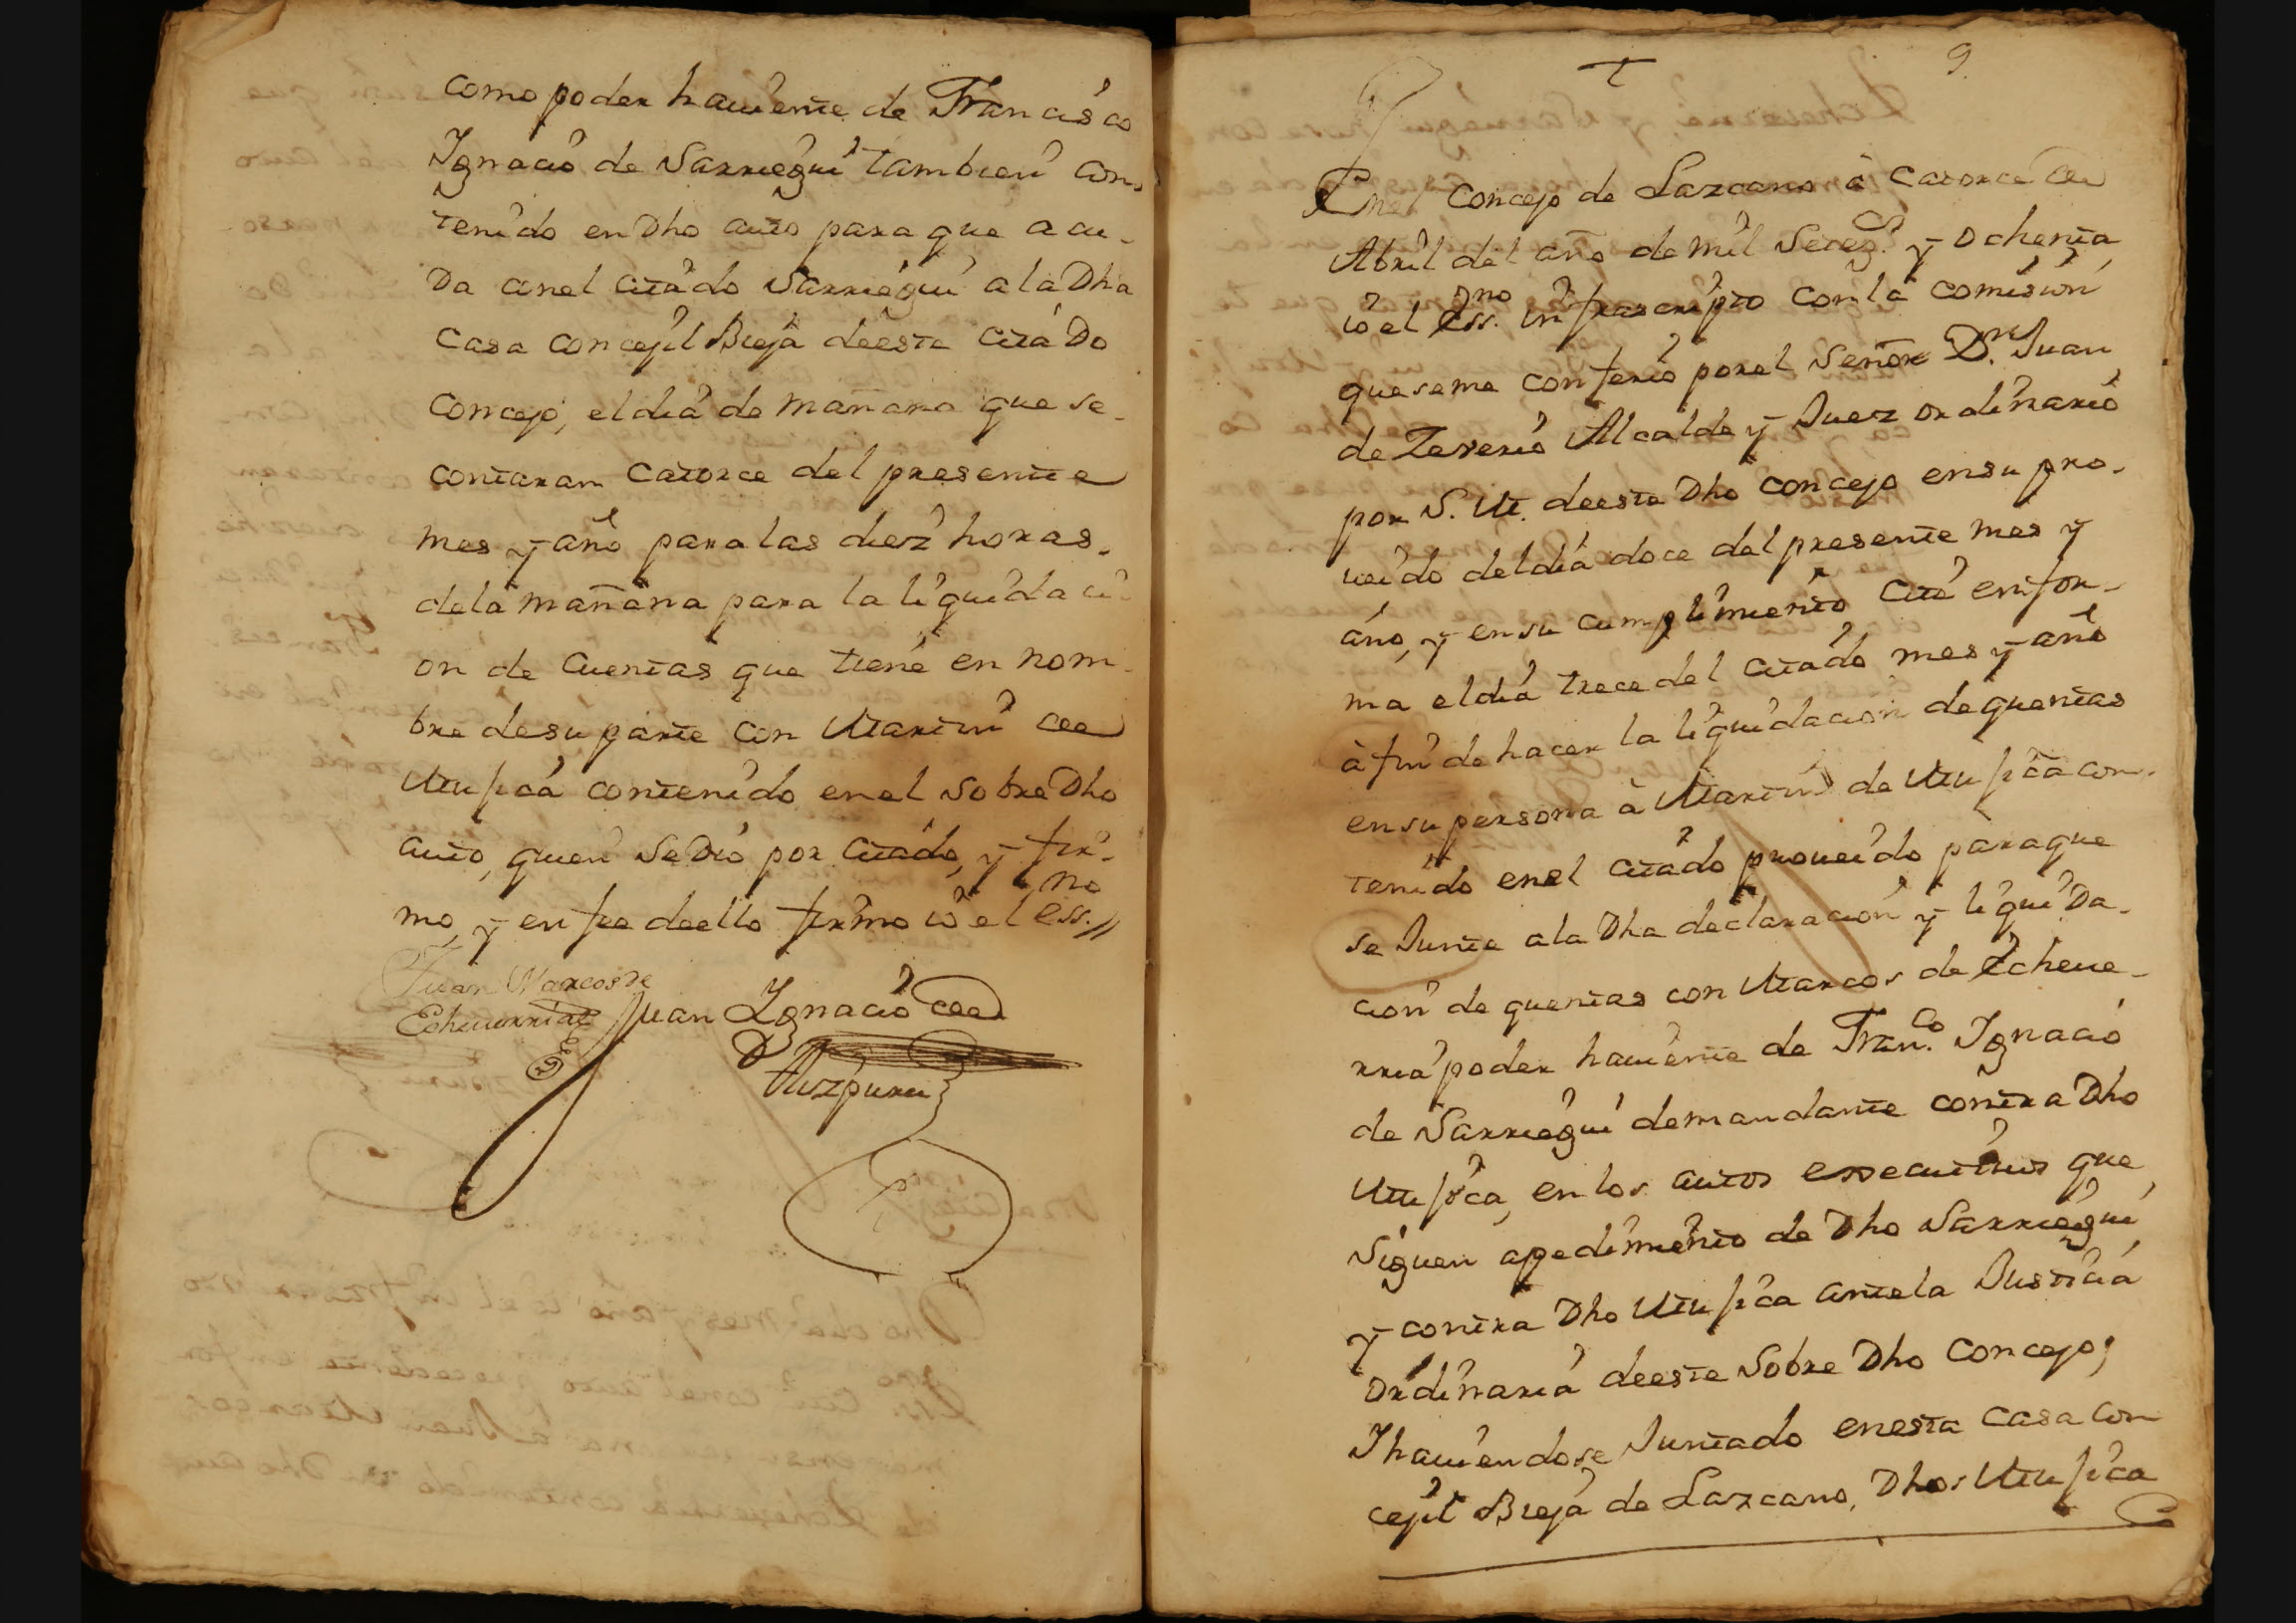 como poder haviente de Francisco
Ignacio de Sarriegui tambien con-
tenido en Dho auto para que acu-
Da con el citado Sarriegui a la Dha
Casa concejil Bieja de este citado
concejo, el dia de mañana que se-
contaran catorce del presente
mes y año para las diez horas.
de la mañana para la liquidaci-
on de Cuentas que tiene en nom-
bre de su parte con Martin de
Mujica contenido en el sobre Dho
auto, quien se Dio por citado, y fir-
mo, y en fee de ello firmo io el Ess.no //
Juan Marcos de
Echeverria Juan Ignacio de
Aizpuru
9
En el Concejo de Lazcano à Catorce de
Abril del año de mil Setez.s y ochenta,
io el Ess.no infraescripto con la comision
que se me confirio por el Señor D.n Juan
de Tereno Alcalde y Juez ordinario
por S. M. de este Dho concejo en su pro-
ueido del dia doce del presente mes y
año, y en su cumplimiento cite en for-
ma el dia trece del citado mes y año
à fin de hacer la liquidacion de quentas
en su persona à Martin de Mujica con-
tenido en el citado proueido para que
se Junte a la Dha declaracion y liquida-
cion de quentas con Marcos de Echeue-
rria poder haviente de Fran.co Ignacio
de Sarriegui demandante contra Dho
Mujica, en los autos executivos que
siguen a pedimento de Dho Sarriegui,
y contra Dho Mujica ante la Justicia
Ordinaria de este sobre Dho Concejo,
I haviendose Juntado en esta Casa Con
cejil Bieja de Lazcano, Dhos Mujica